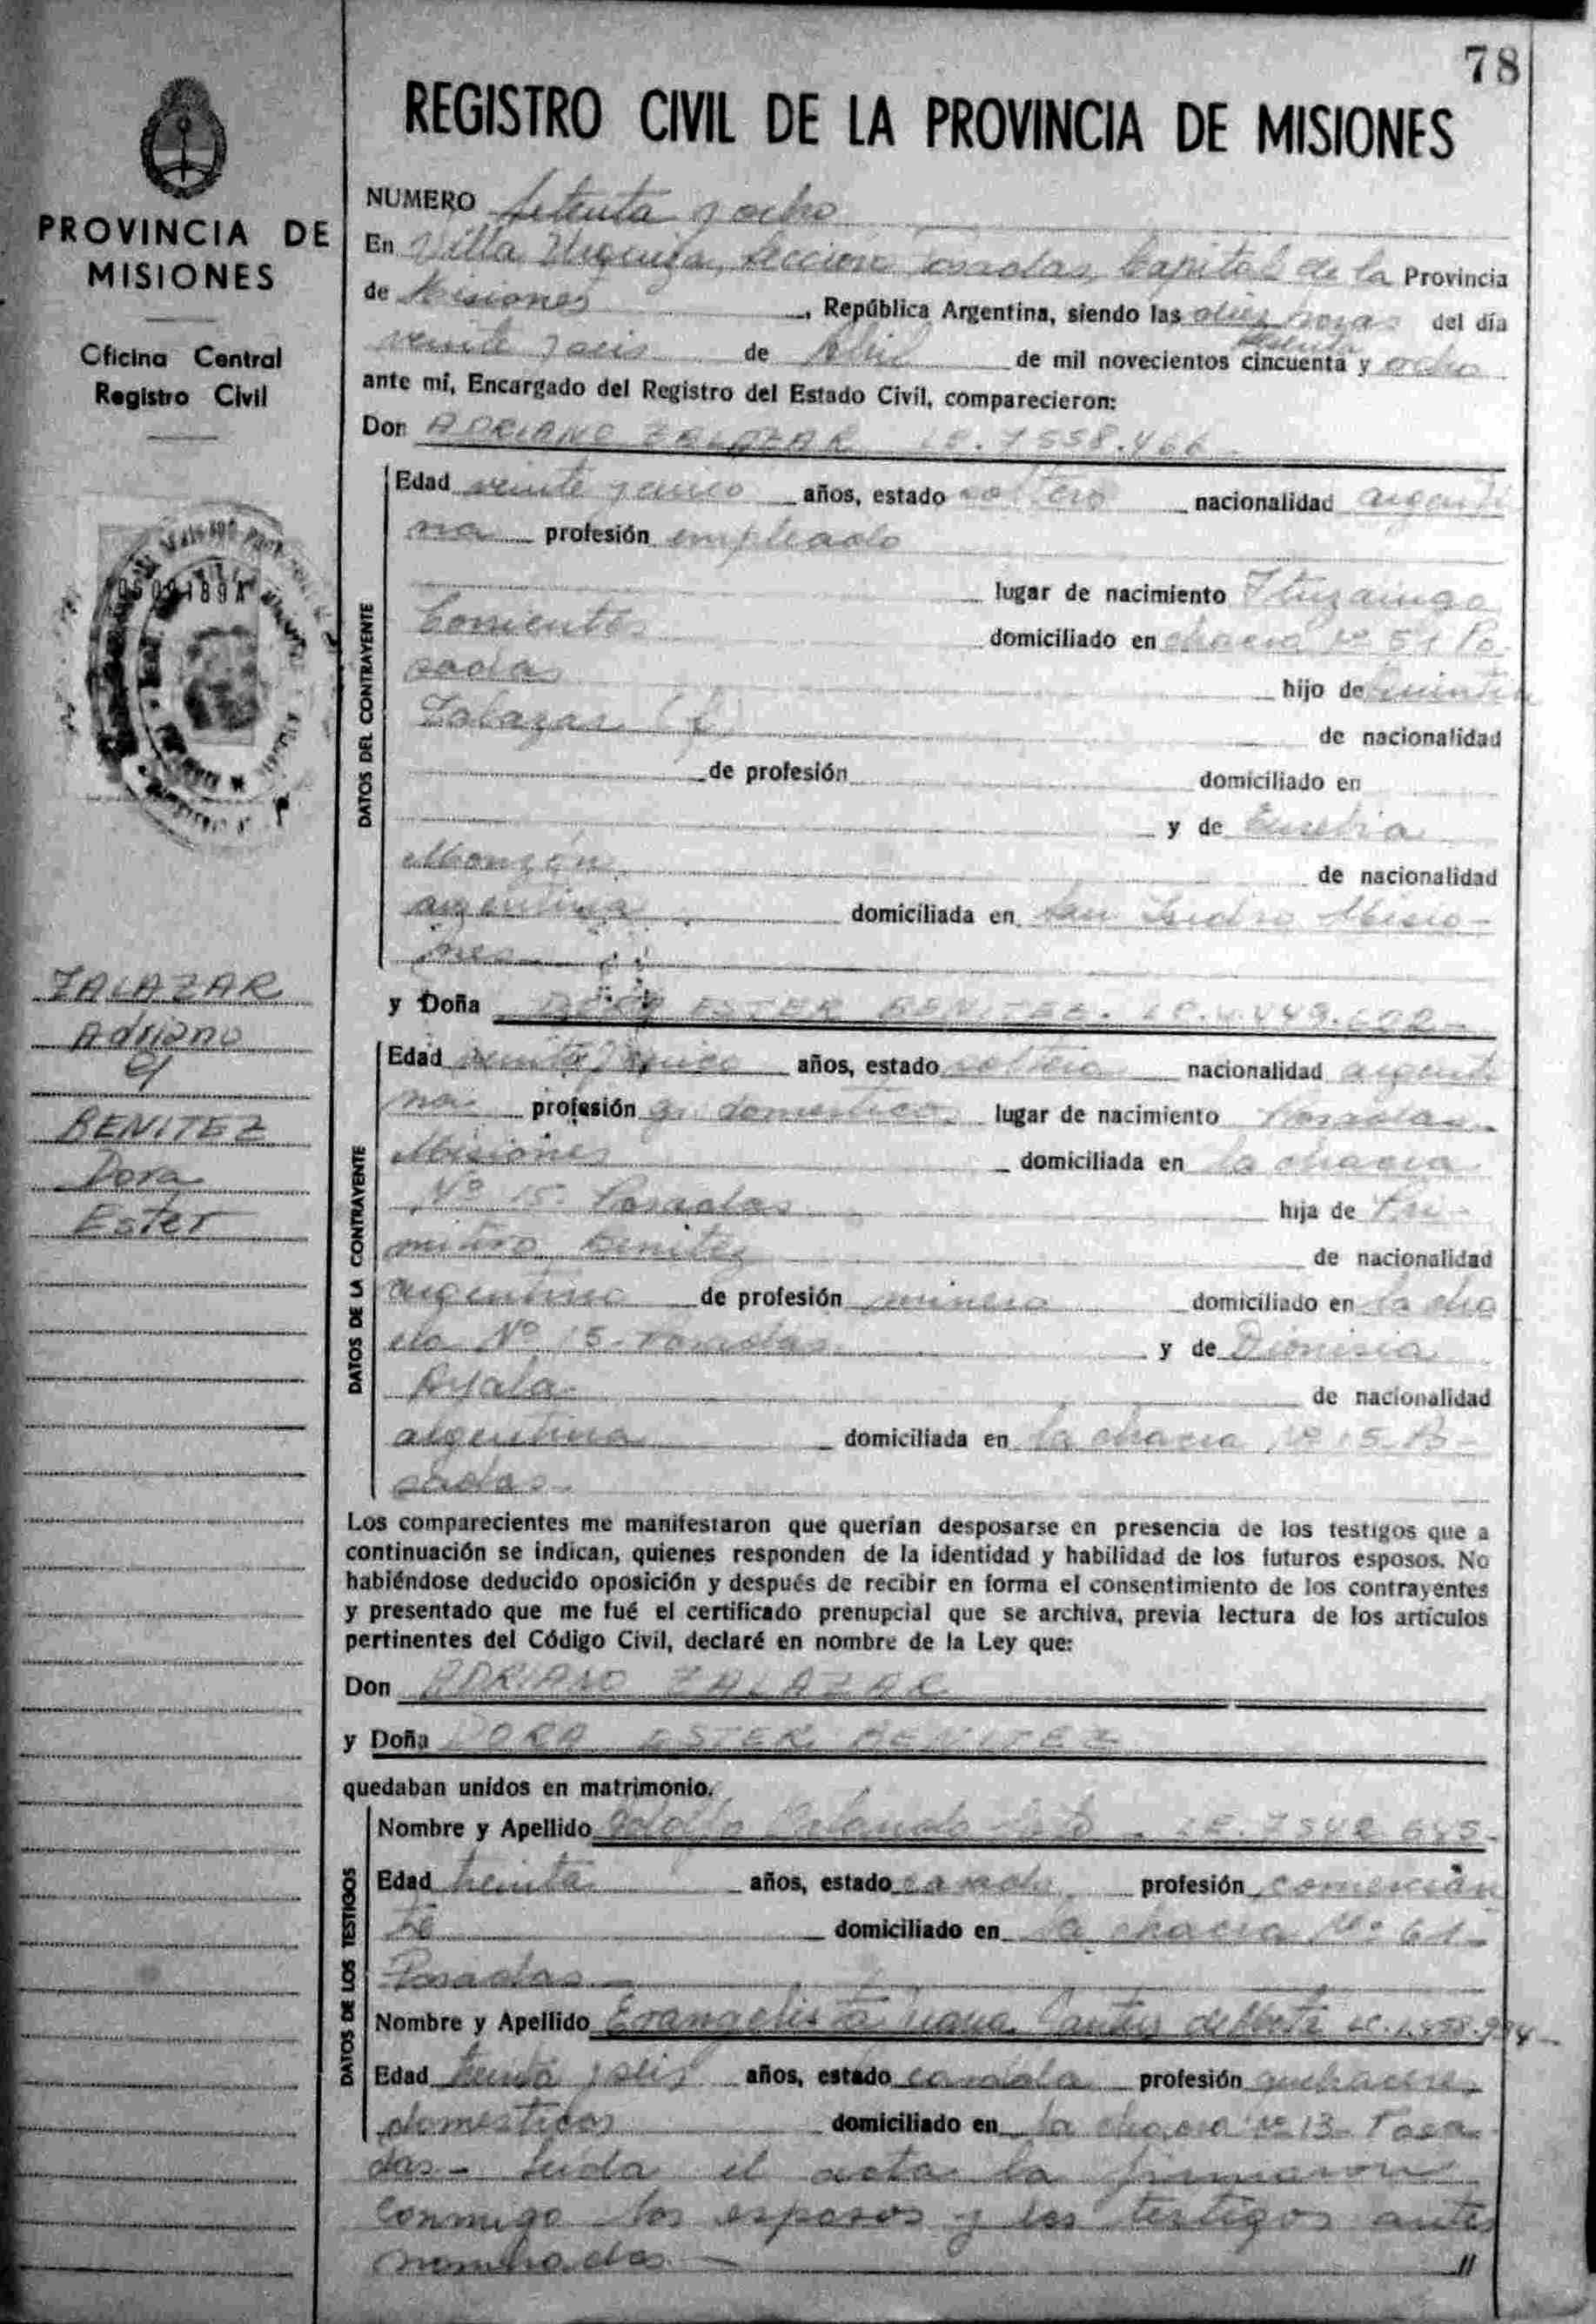 78
REGISTRO CIVIL DE LA PROVINCIA DE MISIONES
PROVINCIA DE
MISIONES
Oficina Central
Registro Civil
ZALAZAR
Adriano
y
BENITEZ
Dora
Ester
NUMERO Setenta y ocho
En Villa Urquiza, Sección Posadas, Capital de la Provincia
de Misiones, República Argentina, siendo las diez horas del día
veinte y seis de Abril de mil novecientos cincuenta y ocho
sesenta
ante mí, Encargado del Registro del Estado Civil, comparecieron:
Don ADRIANO ZALAZAR LE. 7558.466
DATOS DEL CONTRAYENTE
Edad veinte y cinco años, estado soltero nacionalidad argenti
na profesión empleado
lugar de nacimiento Ituzaingo
Corrientes domiciliado en chacra Nº 51 Po
sadas hijo de Quintin
Zalazar (f) de nacionalidad
de profesión domiciliado en
y de Eusebia
Monzón de nacionalidad
argentina domiciliada en San Isidro Misio-
nes
y Doña DORA ESTER BENITEZ.
DATOS DE LA CONTRAYENTE
Edad veinte y cinco años, estado soltera nacionalidad argenti
na profesión q. domesticos lugar de nacimiento Posadas
Misiones domiciliada en la chacra
Nº 15- Posadas hija de Pri-
mitivo Benitez de nacionalidad
argentino de profesión domiciliado en la cha
cra Nº 15- Posadas y de Dionisia
Ayala de nacionalidad
argentina domiciliada en la chacra Nº 15- Po-
sadas-
Los comparecientes me manifestaron que querían desposarse en presencia de los testigos que a
continuación se indican, quienes responden de la identidad y habilidad de los futuros esposos. No
habiéndose deducido oposición y después de recibir en forma el consentimiento de los contrayentes
y presentado que me fué el certificado prenupcial que se archiva, previa lectura de los artículos
pertinentes del Código Civil, declaré en nombre de la Ley que:
Don ADRIANO ZALAZAR
y Doña DORA ESTER BENITEZ
quedaban unidos en matrimonio.
DATOS DE LOS TESTIGOS
Nombre y Apellido LE. 7542 645-
Edad treinta años, estado casado profesión comercian
te domiciliado en la chacra Nº 61-
Posadas-
Nombre y Apellido Evangelista
Edad treinta y seis años, estado casada profesión quehacere
domesticos domiciliado en la chacra Nº 13- Posa
das- Leída el acta la firmaron
conmigo los esposos y los testigos antes
nombrados-